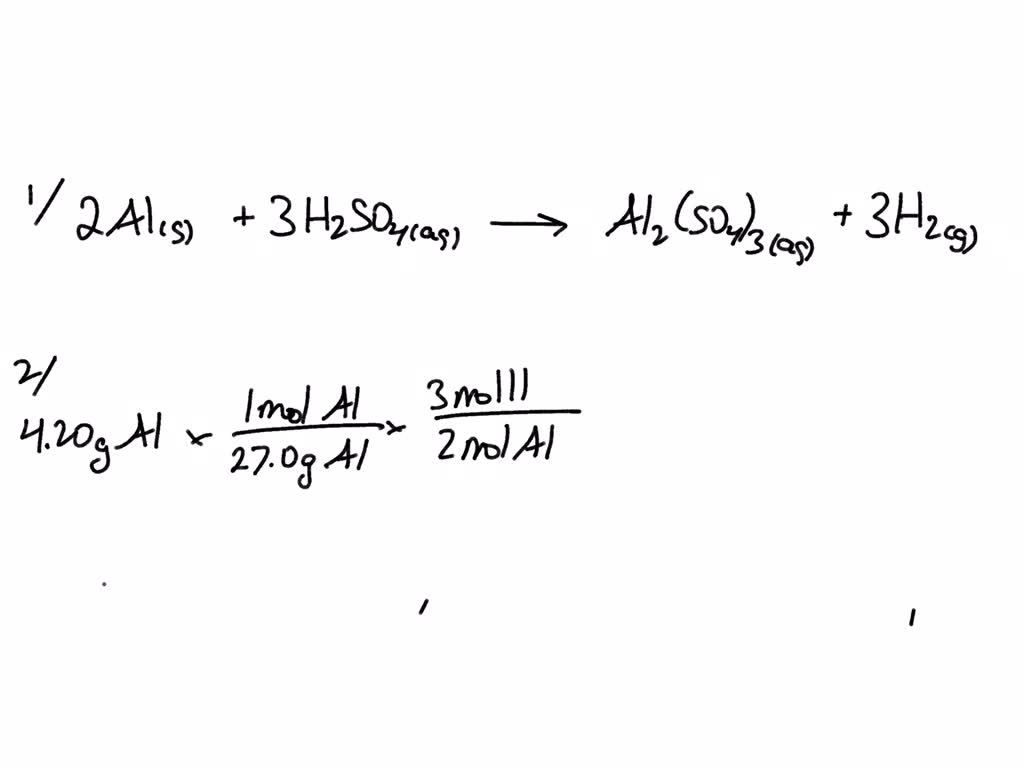 1/ 2Al(s) + 3H2SO4(aq) → Al2(SO4)3(aq) + 3H2(g)
2/
4.20g Al x 1mol Al / 27.0g Al x 3mol l l / 2mol Al